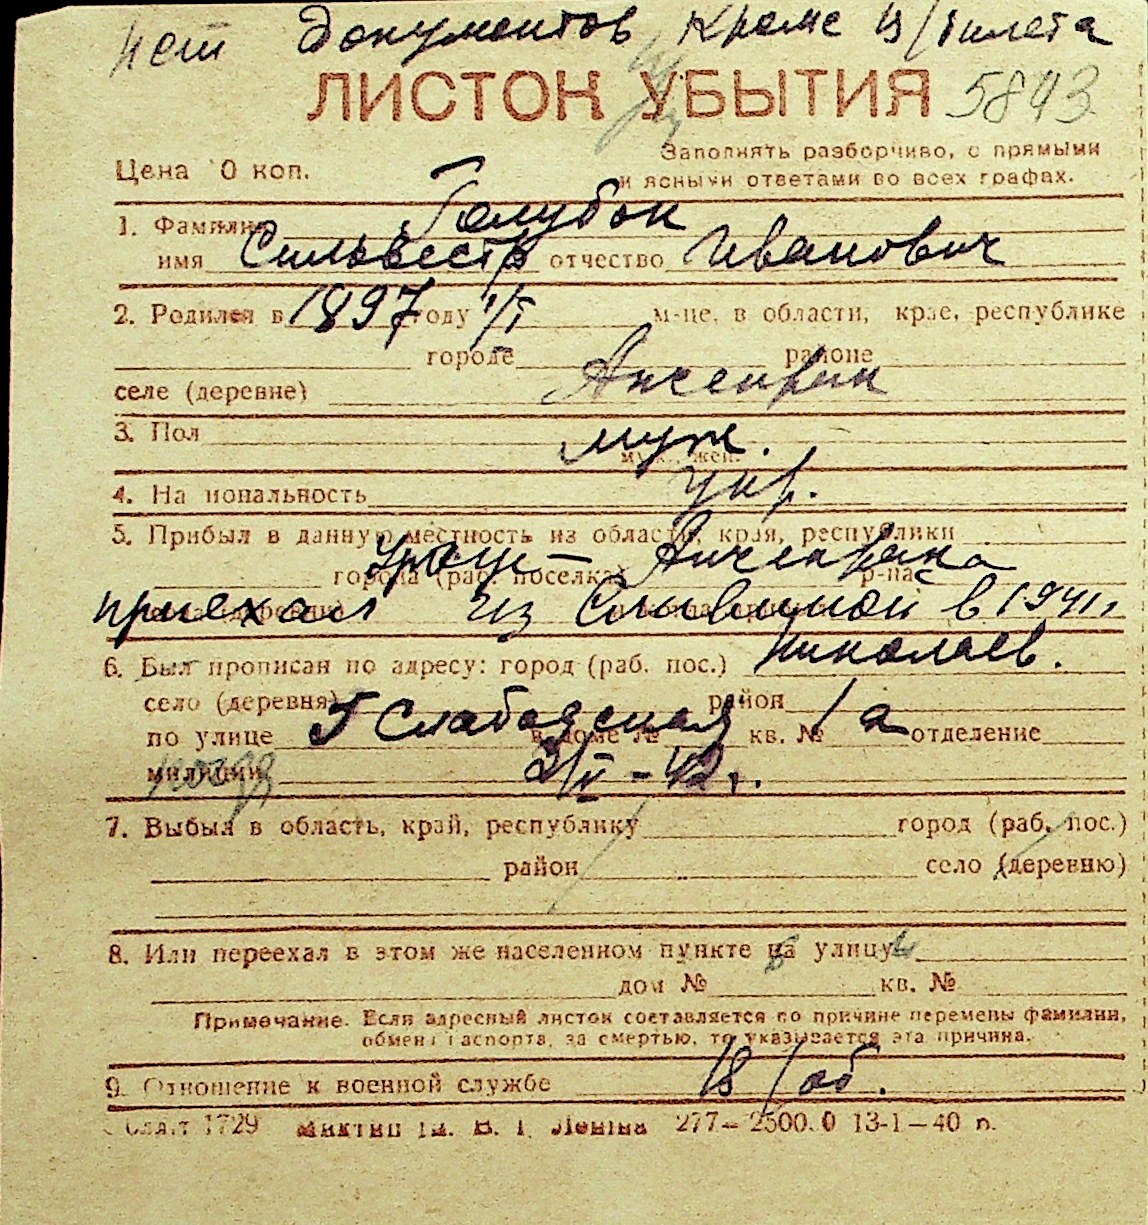 нет документов кроме в/билета
ЛИСТОК УБЫТИЯ 5843
Цена 0 коп.
Заполнять разборчиво, с прямыми
и ясными ответами во всех графах.
1. Фамилия Голубок
имя Сильвестр отчество Иванович
2. Родился в 1897 году 1/I м-це, в области, крае, республике
городе районе
селе (деревне)
3. Пол муж.
муж., жен.
4. Национальность укр.
5. Прибыл в данную местность из области, края, республики
города (раб. поселка) р-на
приехал из в 1941 г
6. Был прописан по адресу: город (раб. пос.) Николаев.
село (деревня) район
по улице Слободская в доме № кв. № 1а отделение
милиции 2/II-42 г.
7. Выбыл в область, край, республику город (раб. пос.)
район село (деревню)
8. Или переехал в этом же населенном пункте на улицу
дом № кв. №
Примечание. Если адресный листок составляется по причине перемены фамилии,
обмена паспорта, за смертью, то указывается эта причина.
9. Отношение к военной службе в/об.
1729 Ленина 277–2500.0 13-1–40 п.